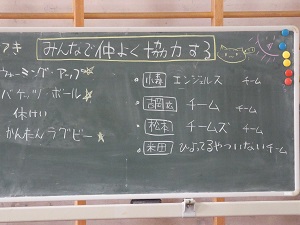 みんなで仲よく協力する
ウォーミング・アップ
バケッツ・ボール
休けい
かんたんラグビー
エンジェルス チーム
チーム
松本 チームズ チーム
米田 ひよってるやついないチーム